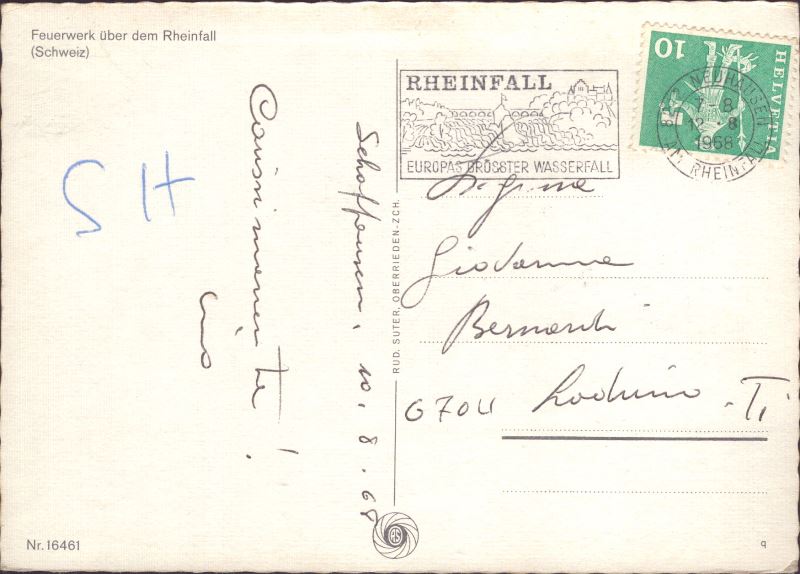 Feuerwerk über dem Rheinfall
(Schweiz)
SH
Carissimamente!
Schaffausen, 10.8.68
RUD. SUTER, OBERRIEDEN-ZCH.
RHEINFALL
EUROPAS GRÖSSTER WASSERFALL
HELVETIA
10
NEUHAUSEN
12-8
1968
AM RHEINFALL
Giovanna
6704 Lodrino - Ti
Nr. 16461
q